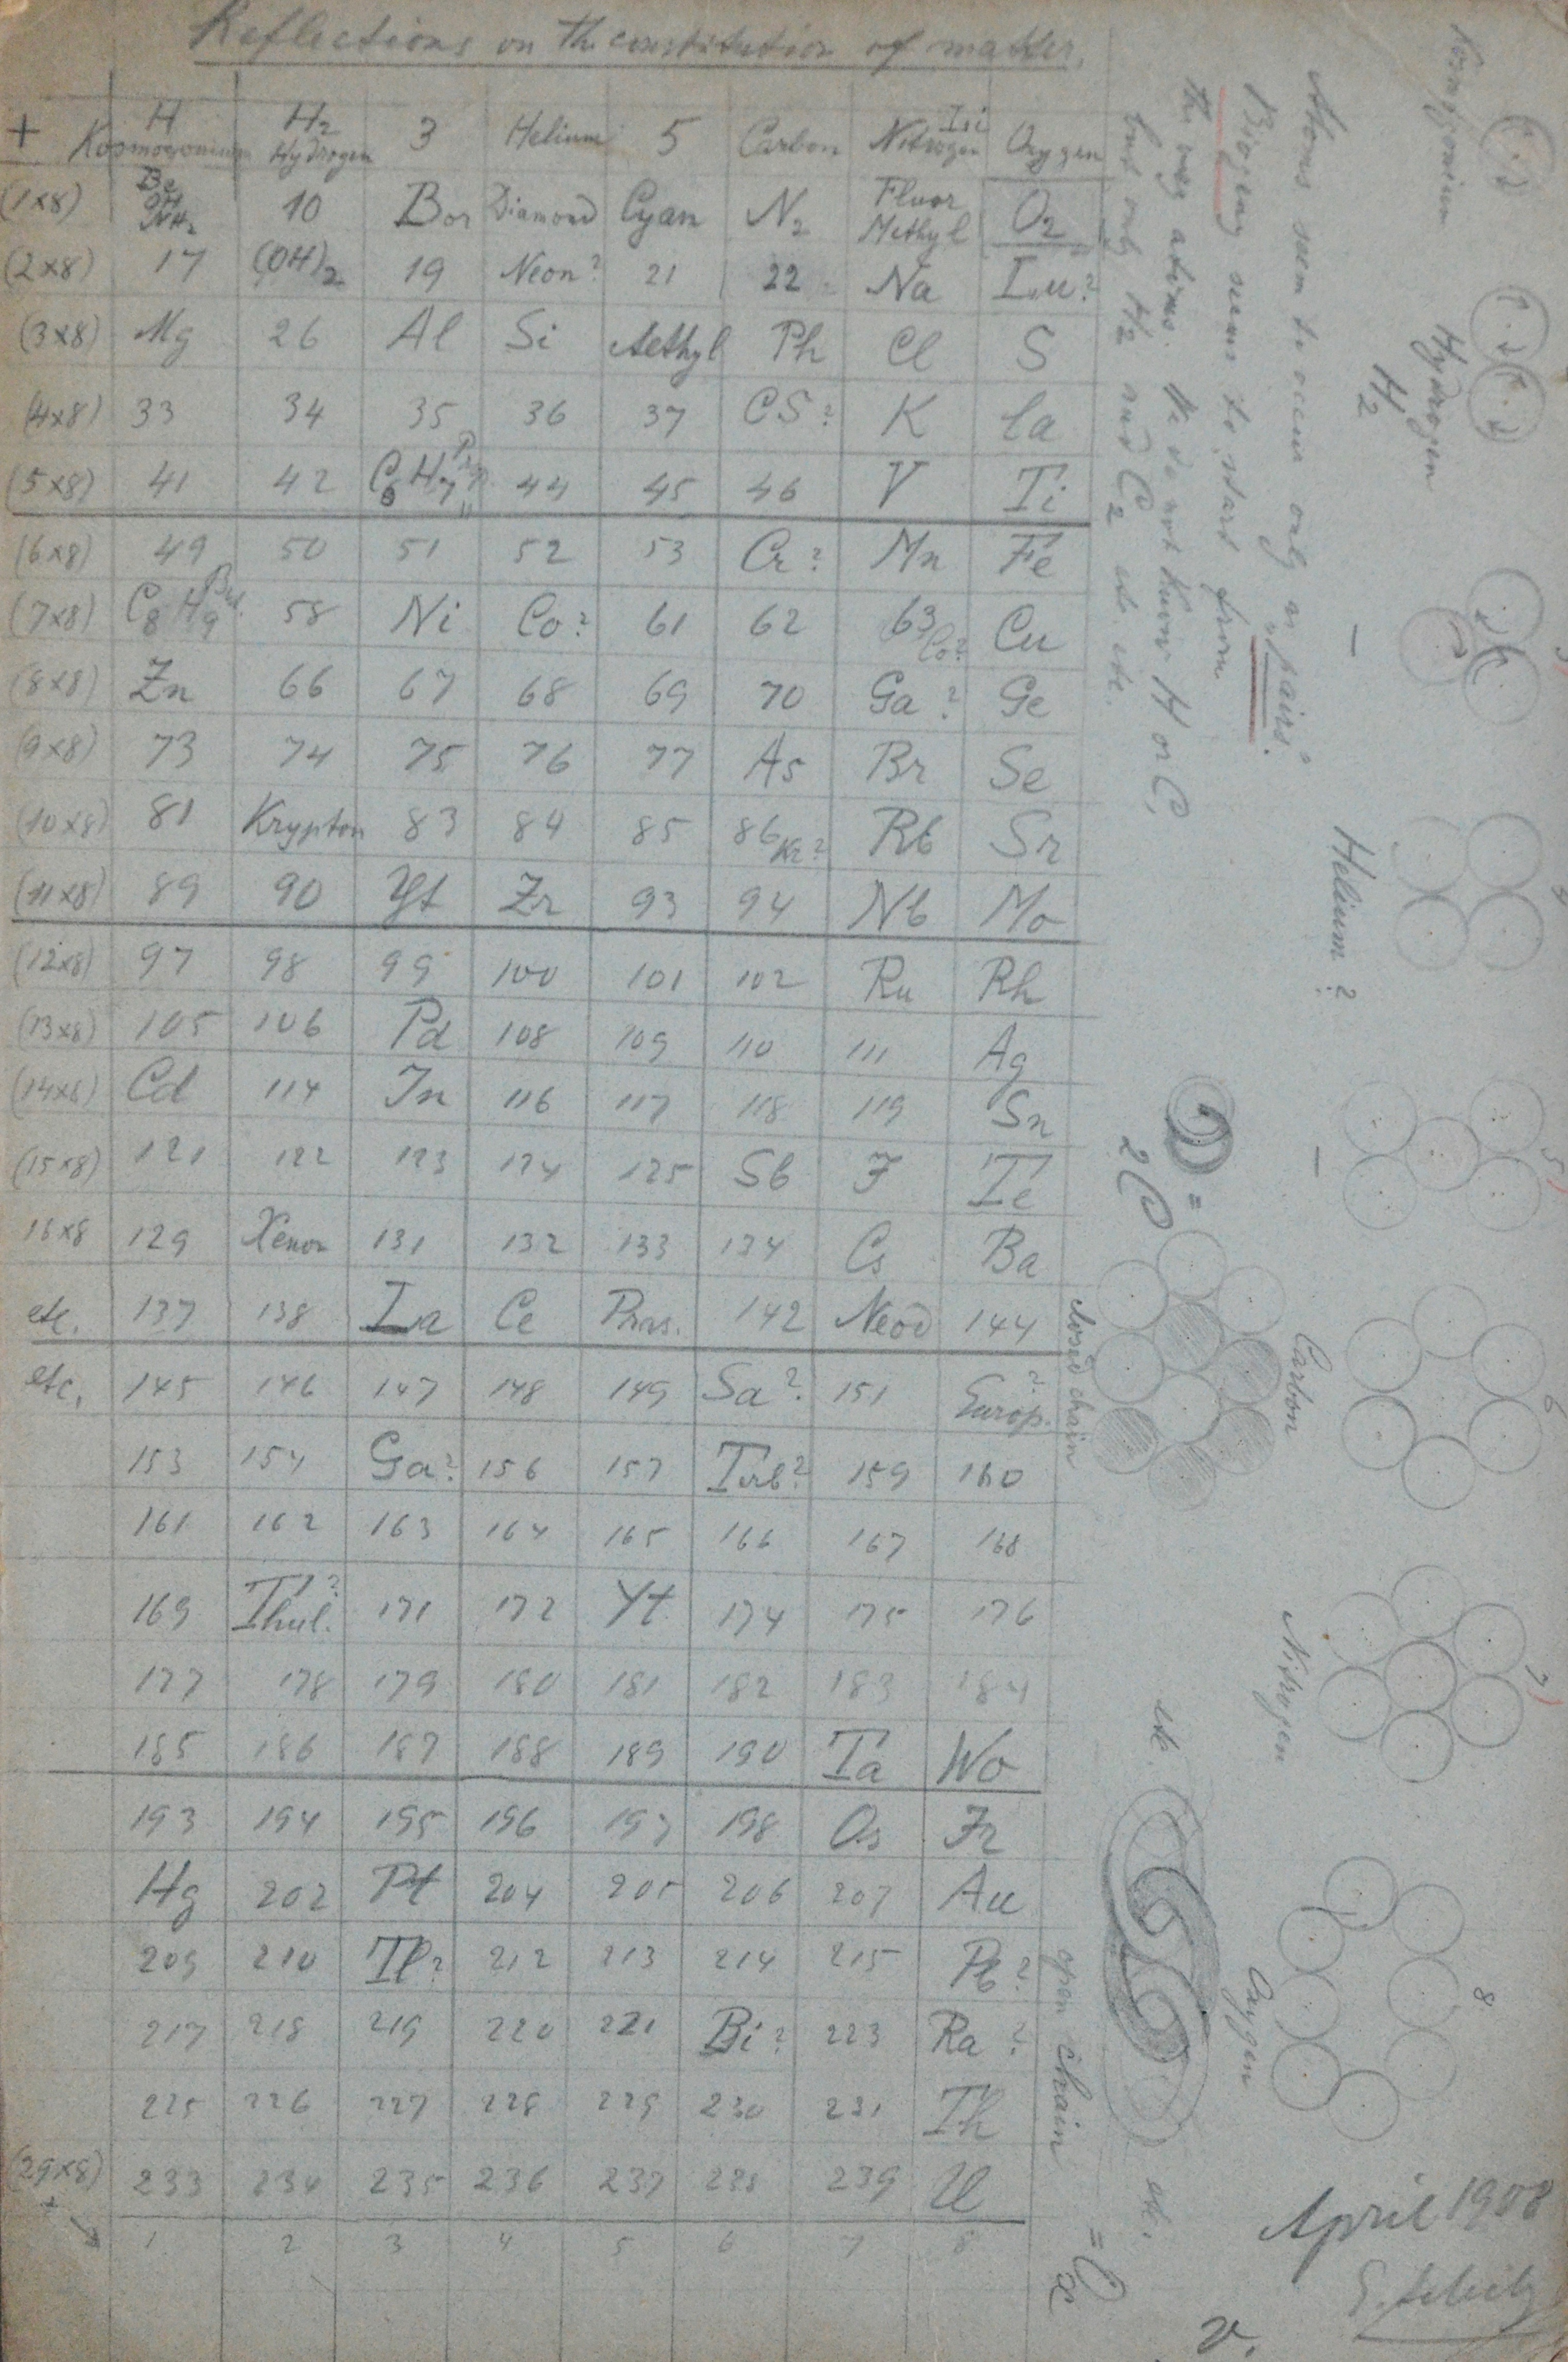 Reflections on the constitution of matter.
+ H Kosmogonium H2 Hydrogen 3 Helium 5 Carbon Nitrogen Oxygen
(1x8) Be OH NH2 10 Bor Diamond Cyan N2 Fluor Methyl O2
(2x8) 17 (OH)2 19 Neon? 21 22 Na
(3x8) Mg 26 Al Si Aethyl Ph Cl S
(4x8) 33 34 35 36 37 CS? K Ca
(5x8) 41 42 44 45 46 V Ti
(6x8) 49 50 51 52 53 Cr? Mn Fe
(7x8) C8H9 58 Ni Co? 61 62 63 Co? Cu
(8x8) Zn 66 67 68 69 70 Ga? Ge
(9x8) 73 74 75 76 77 As Br Se
(10x8) 81 Krypton 83 84 85 86 Kr? Rb Sr
(11x8) 89 90 Yt Zr 93 94 Nb Mo
(12x8) 97 98 99 100 101 102 Ru Rh
(13x8) 105 106 Pd 108 109 110 111 Ag
(14x8) Cd 114 In 116 117 118 119 Sn
(15x8) 121 122 123 124 125 Sb J Te
16x8 129 Xenon 131 132 133 134 Cs Ba
etc. 137 138 La Ce Pras. 142 Neod 144
etc. 145 146 147 148 149 Sa? 151 Europ.?
153 154 Ga? 156 157 Terb? 159 160
161 162 163 164 165 166 167 168
169 Thul.? 171 172 Yt 174 175 176
177 178 179 180 181 182 183 184
185 186 187 188 189 190 Ta Wo
193 194 195 196 197 198 Os Ir
Hg 202 Pt 204 205 206 207 Au
209 210 Tl? 212 213 214 215 Pb?
217 218 219 220 221 Bi? 223 Ra?
225 226 227 228 229 230 231 Th
(29x8) + 233 234 235 236 237 238 239 U
1 2 3 4 5 6 7 8
Atoms seem to occur only in "pairs".
Biogeny seems to start from
the way atoms. We do not know H or C,
but only H2 and C2 etc. etc.
Kosmogonium
Hydrogen
H2
3)
Helium?
4
5)
Carbon
6
Nitrogen
7)
Oxygen
8
= 2C
closed chain
etc.
open chain
etc.
= Cx
April 1908
v.